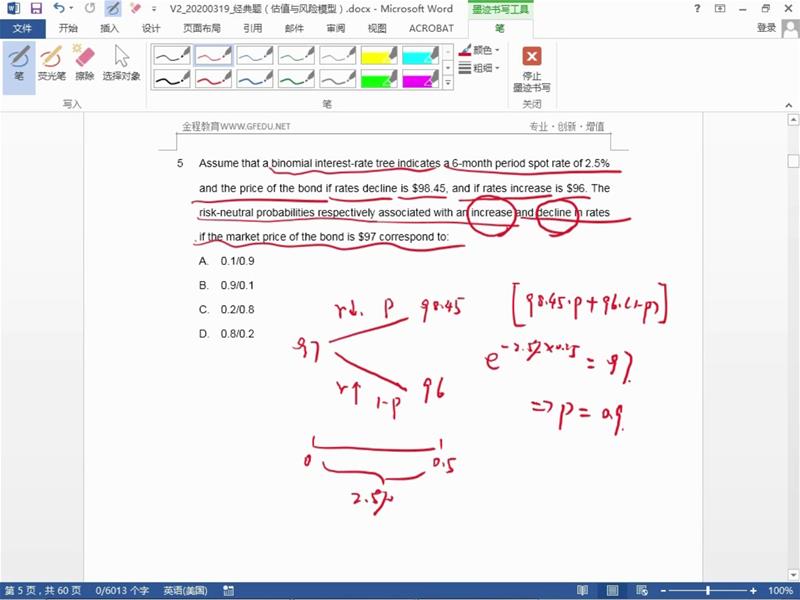 V2_20200319_经典题（估值与风险模型）.docx - Microsoft Word
墨迹书写工具
文件 开始 插入 设计 页面布局 引用 邮件 审阅 视图 ACROBAT 笔 登录
笔 荧光笔 擦除 选择对象
颜色
粗细
停止
墨迹书写
写入 笔 关闭
金程教育WWW.GFEDU.NET 专业·创新·增值
5 Assume that a binomial interest-rate tree indicates a 6-month period spot rate of 2.5%
and the price of the bond if rates decline is $98.45, and if rates increase is $96. The
risk-neutral probabilities respectively associated with an increase and decline in rates
if the market price of the bond is $97 correspond to:
A. 0.1/0.9
B. 0.9/0.1
C. 0.2/0.8
D. 0.8/0.2
r↓. P 98.45
97
r↑ 1-P 96
0 0.5
2.5%
[98.45·P+96·(1-P)]
e^-2.5%×0.5 = 97
=> P = 0.9
第 5 页，共 60 页 0/6013 个字 英语(美国) 100%